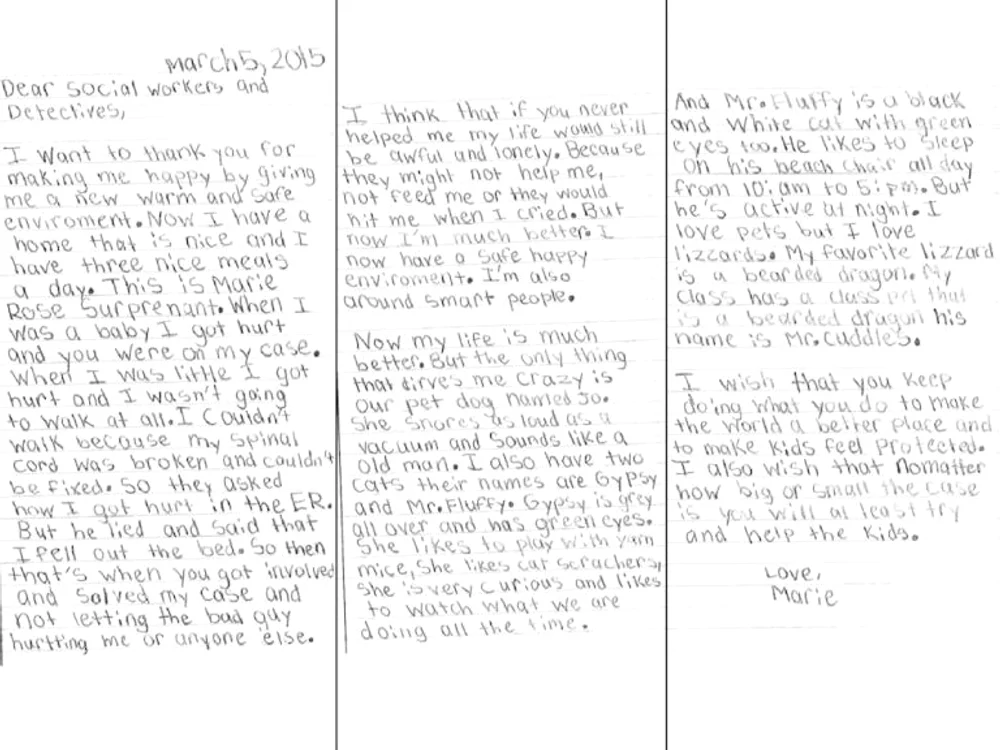 March 5, 2015
Dear social workers and
Detectives,
I want to thank you for
making me happy by giving
me a new warm and safe
enviroment. Now I have a
home that is nice and I
have three nice meals
a day. This is Marie
Rose Surprenant. When I
was a baby I got hurt
and you were on my case.
When I was little I got
hurt and I wasn't going
to walk at all. I couldn't
walk because my spinal
cord was broken and couldn't
be fixed. So they asked
how I got hurt in the ER.
But he lied and said that
I fell out the bed. So then
that's when you got involved
and solved my case and
not letting the bad guy
hurtting me or anyone else.
I think that if you never
helped me my life would still
be awful and lonely. Because
they might not help me,
not feed me or they would
hit me when I cried. But
now I'm much better. I
now have a safe happy
enviroment. I'm also
around smart people.
Now my life is much
better. But the only thing
that dirves me crazy is
our pet dog named Jo.
She snores as loud as a
vacuum and sounds like a
old man. I also have two
cats their names are Gypsy
and Mr. Fluffy. Gypsy is grey
all over and has green eyes.
She likes to play with yarn
mice, she likes cat scrachers,
she is very curious and likes
to watch what we are
doing all the time.
And Mr. Fluffy is a black
and white cat with green
eyes too. He likes to sleep
on his beach chair all day
from 10: am to 5: pm. But
he's active at night. I
love pets but I love
lizzards. My favorite lizzard
is a bearded dragon. My
class has a class pet that
is a bearded dragon his
name is Mr. Cuddles.
I wish that you keep
doing what you do to make
the world a better place and
to make kids feel protected.
I also wish that nomatter
how big or small the case
is you will at least try
and help the kids.
Love,
Marie